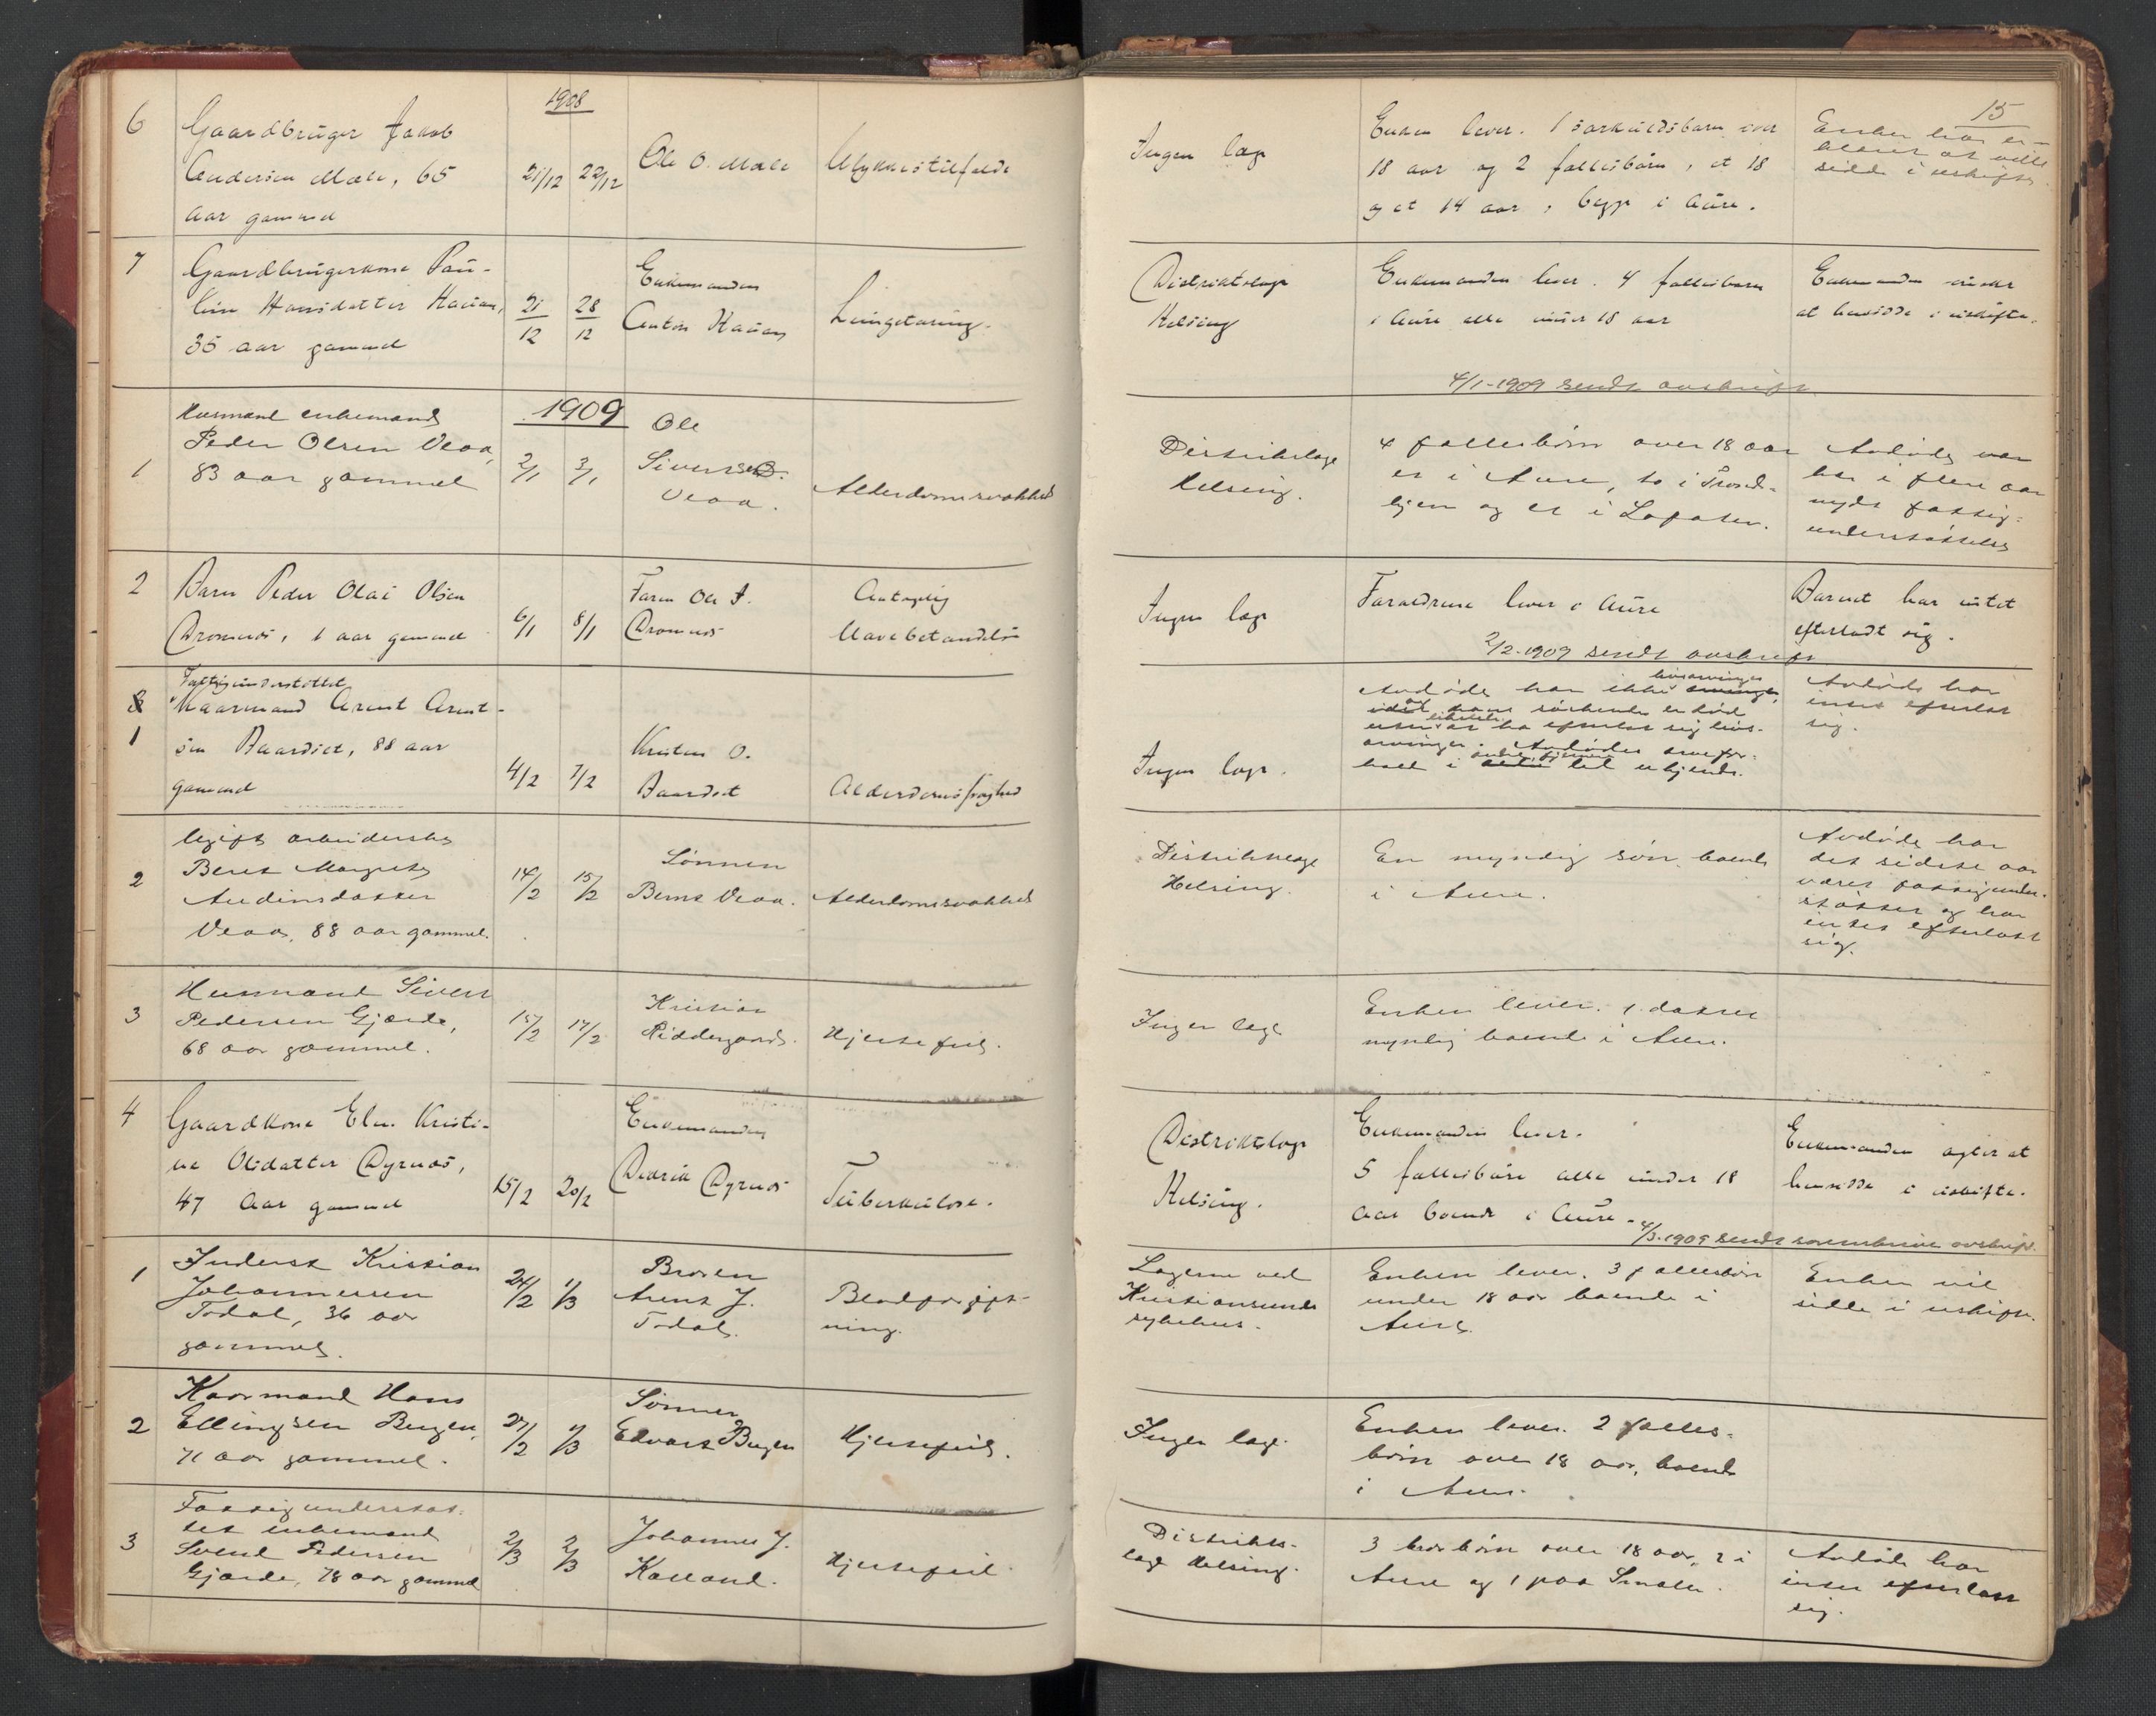 15
1908
6
Gaardbruger Jakob
Andersen Mæle, 65
aar gammel
21/12 22/12
Ole O. Mæle
Ulykkestilfælde
Ingen læge
Enken lever. 1 særkuldsbarn over
18 aar og 2 fællesbørn, et 18
og et 14 aar, begge i Aure.
Enken har er-
klæret at ville
sidde i uskifte.
7
Gaardbrugerkone Pau-
line Hansdatter
35 aar gammel
21/12 28/12
Enkemanden
Anton
Lungetæring.
Distriktslæge
Helsing
Enkemanden lever. 4 fællesbørn
i Aure alle under 18 aar
Enkemanden ønsker
at hensidde i uskifte.
4/1-1909 sendt avskrift
1909
1
Husmand enkemand
Peder Olsen Veaa,
83 aar gammel
2/1 3/1
Ole
Sivertsen
Veaa.
Alderdomssvakhed
Distriktslæge
Helsing.
4 fællesbørn over 18 aar
et i Aure, to i Trond-
hjem og et i Lofoten.
Avdøde var
har i flere aar
nydt fattig-
understøttelse
2
Barn Peder Olai Olsen
Dromnes, 1 aar gammel
6/1 8/1
Faren Ole J.
Dromnes
Antagelig
Mavebetændelse
Ingen læge
Forældrene lever i Aure
Barnet har intet
efterladt sig.
2/2-1909 sendt avskrift
1
Fattigunderstøttet
Kaarmand Arent Arent-
sen Baardset, 88 aar
gammel
4/2 7/2
Kristen O.
Baardset
Alderdomssvaghed
Ingen læge.
Avdøde har ikke livsarvinger,
idet hans søskende er død
uten at ha efterlat sig livs-
arvinger. Avdødes arvefor-
hold i til ukjendt.
Avdøde har
intet efterlat
sig.
2
Ugift arbeiderske
Beret Margrete
Audinsdatter
Veaa, 88 aar gammel.
14/2 15/2
Sønnen
Bernt Veaa.
Alderdomssvakhed
Distriktslæge
Helsing.
En myndig søn, boende
i Aure.
Avdøde har
det sidste aar
været fattigunder-
støttet og har
intet efterlatt
sig.
3
Husmand Sivert
Pedersen Gjærde,
68 aar gammel.
15/2 17/2
Kristian
Riddergaard.
Hjertefeil.
Ingen læge
Enken lever. 1 datter
myndig boende i Aure.
4
Gaardkone Elen Kristi-
ne Olsdatter Dyrnes,
47 aar gammel
15/2 20/2
Enkemanden
Didrik Dyrnes
Tuberkulose.
Distriktslæge
Helsing.
Enkemanden lever.
5 fællesbørn alle under 18
aar boende i Aure.
Enkemanden agter at
hensidde i uskifte.
4/3-1909 sendt avskrift.
1
Inderst Kristian
Johannessen
Todal, 36 aar
gammel.
24/2 1/3
Broren
Arent J.
Todal.
Blodforgift-
ning.
Lægerne ved
Kristiansunds
sykehus.
Enken lever. 3 fællesbørn
under 18 aar boende i
Aure.
Enken vil
sidde i uskifte.
2
Kaarmand Hans
Ellingsen Bugen,
71 aar gammel.
27/2 1/3
Sønnen
Edvart Bugen
Hjertefeil.
Ingen læge.
Enken lever. 2 fælles-
børn over 18 aar, boende
i Aure.
3
Fattigunderstøt-
tet enkemand
Svend Pedersen
Gjærde, 78 aar gammel
2/3 2/3
Johannes J.
Kalland.
Hjertefeil.
Distrikts-
læge Helsing.
3 børn over 18 aar, 2 i
Aure og 1 paa Smølen.
Avdøde har
intet efterlatt
sig.